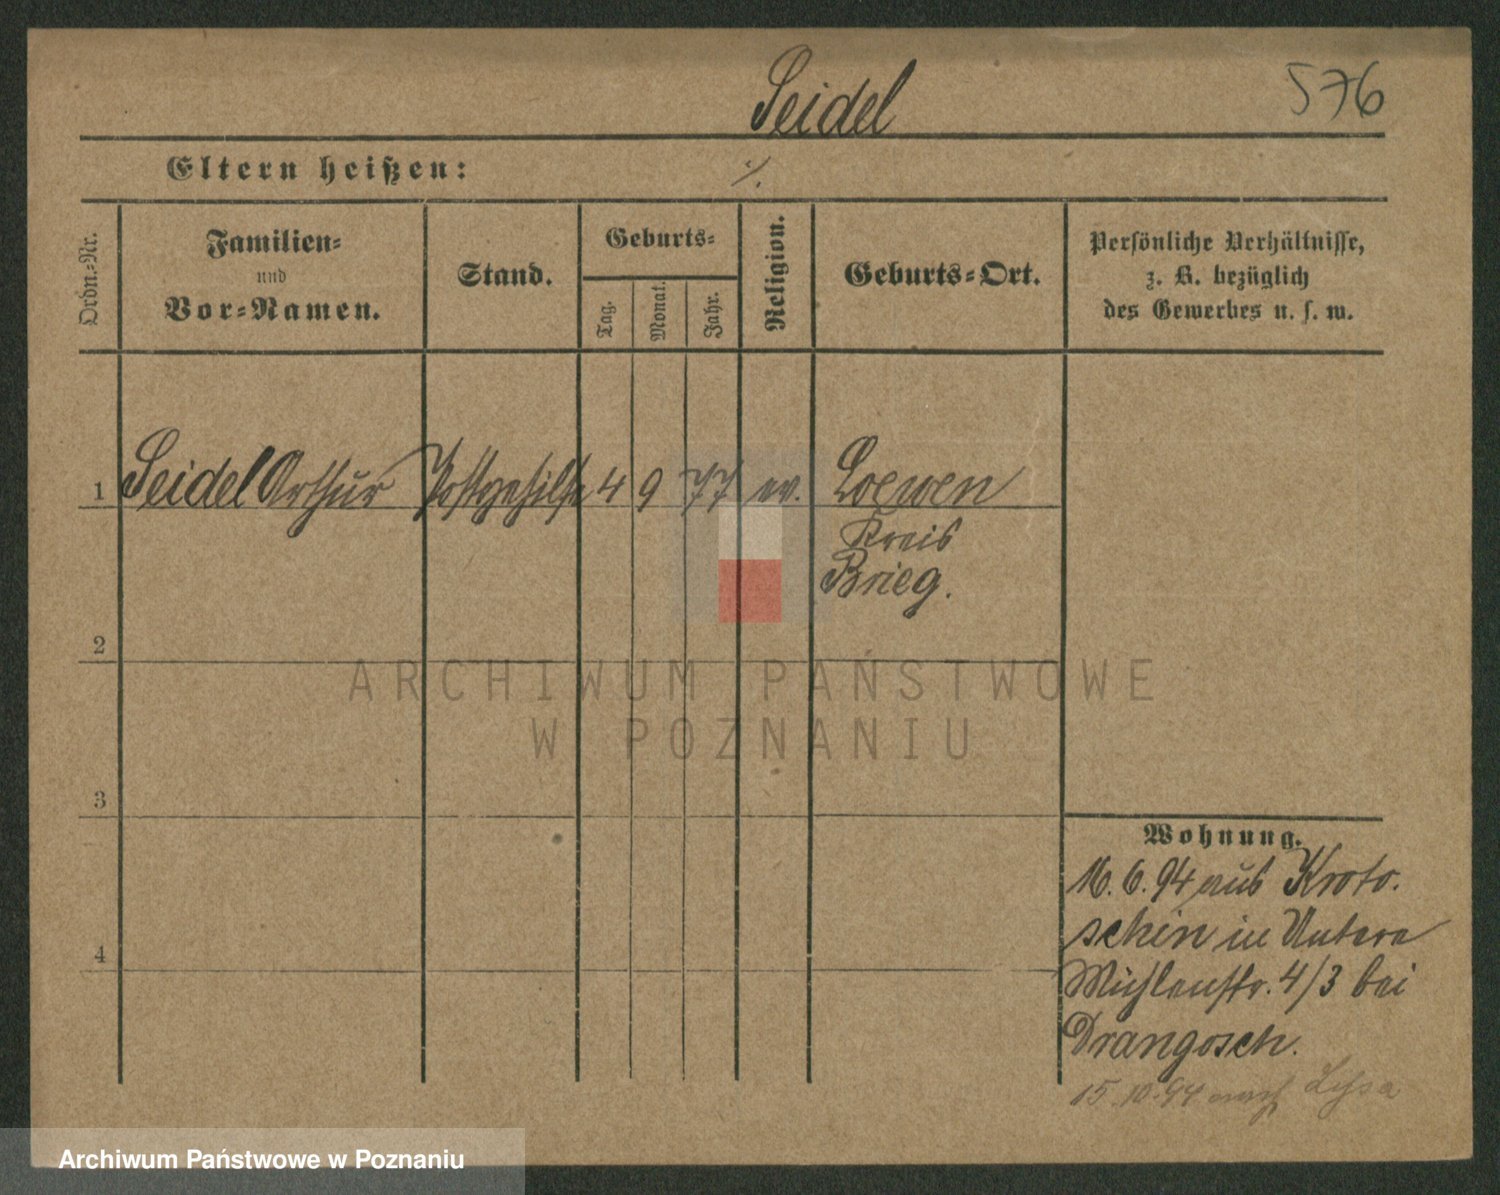 Seidel
576
Eltern heißen: ·/.
Ordn.-Nr.
Familien-
und
Vor-Namen.
Stand.
Geburts-
Tag.
Monat.
Jahr.
Religion.
Geburts-Ort.
Persönliche Verhältnisse,
z. B. bezüglich
des Gewerbes u. s. w.
1 Seidel Arthur Postgehilfe 4 9 77 ev. Loewen
Kreis
Brieg.
2
3
4
Wohnung.
16.6.94 aus Kroto-
schin in Untere
Mühlenstr. 4/3 bei
Drangosch.
15.10.94 nach Lissa
ARCHIWUM PAŃSTWOWE
W POZNANIU
Archiwum Państwowe w Poznaniu